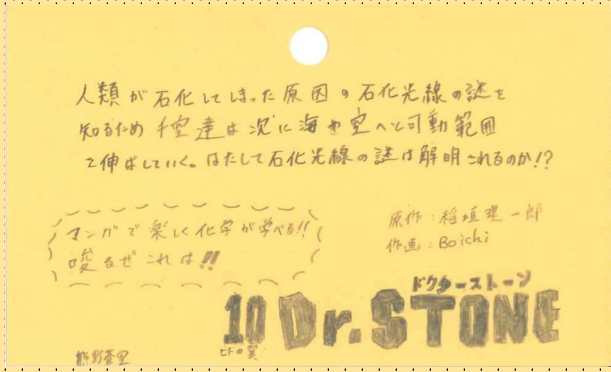 人類が石化してしまった原因の石化光線の謎を
知るため千空達は次に海や空へと可動範囲
を伸ばしていく。はたして石化光線の謎は解明されるのか!?
マンガで楽しく化学が学べる!!
唆るぜこれは!!
原作:稲垣理一郎
作画:Boichi
ドクターストーン
10 Dr.STONE
ヒトの翼